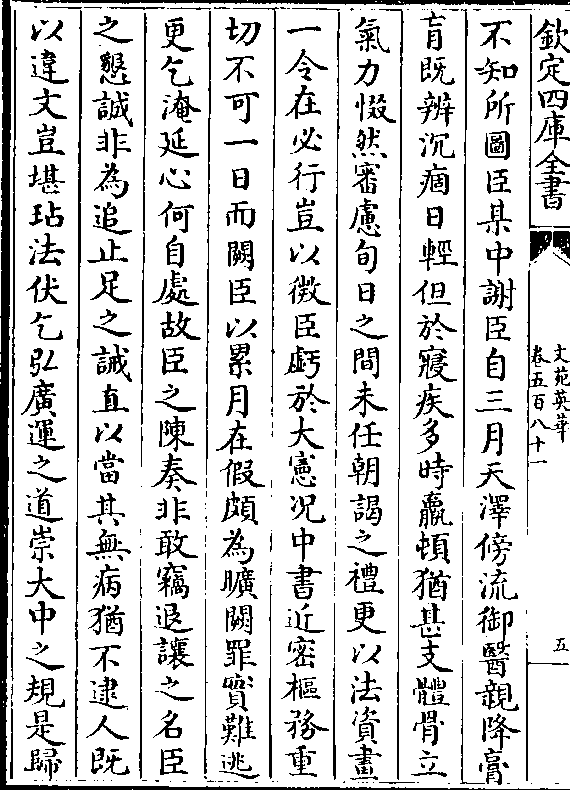 欽定四庫全書
文苑英華
卷五百八十一
五
不知所圖臣某中謝臣自三月天澤傍流御醫親降膏
肓既辨沉痼日輕但於寢疾多時羸頓猶甚支體骨立
氣力惙然審慮旬日之間未任朝謁之禮更以法資畫
一令在必行豈以微臣虧於大憲况中書近密樞務重
切不可一日而闕臣以累月在假頗為曠闕罪實難逃
更乞淹延心何自處故臣之陳奏非敢竊退讓之名臣
之懇誠非為追止足之誡直以當其無病猶不逮人既
以違文豈堪玷法伏乞弘廣運之道崇大中之規是歸